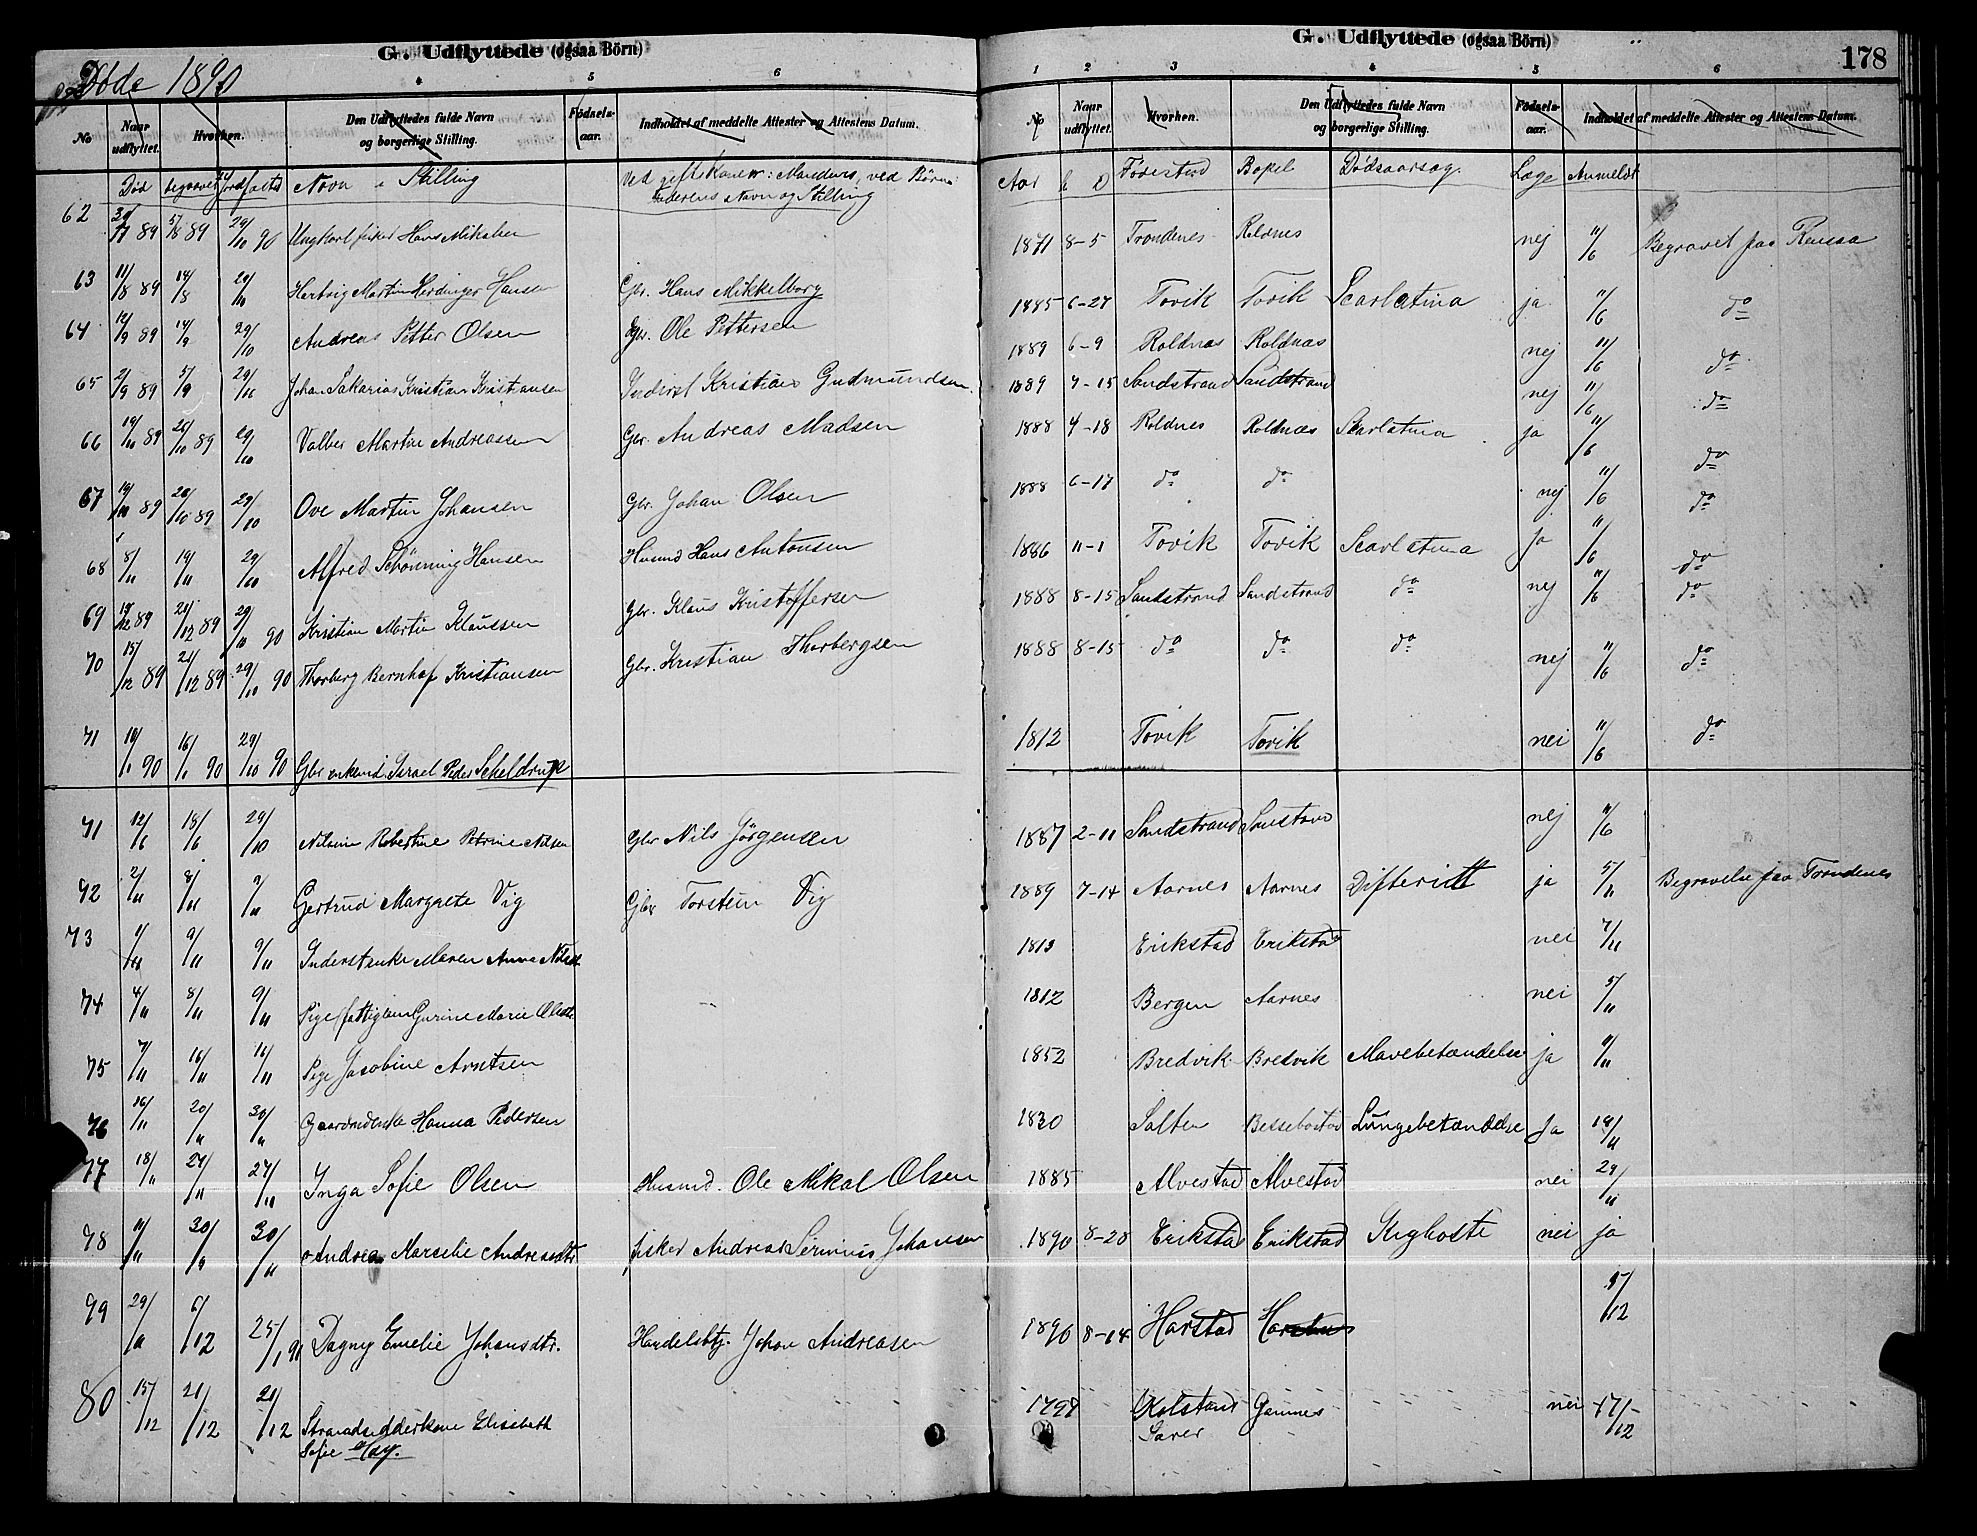 G. Udflyttede (ogsaa Börn)
Døde 1890
4 5 6
No Naar udflyttet. Hvorhen. Den Udflyttedes fulde Navn og borgerlige Stilling. Fødsels-aar. Indholdet af meddelte Attester og Attestens Datum.
Død begravet Jordfæstet Navn Stilling Ved gifte Koner: Mandens, ved Børn:
Faderens Navn og Stilling
62 89 5/8 89 29/10 90 Ungkarl fisker Hans Mikalsen
63 11/8 89 14/8 29/10 Hartvig Martin Herdinger Hansen Gbr. Hans Mikkelborg
64 12/9 89 14/9 29/10 Andreas Petter Olsen Gbr. Ole Pettersen
65 2/9 89 5/9 29/10 Johan Sakarias Kristian Kristiansen Inderst Kristian Gudmundsen
66 19/10 89 26/10 89 29/10 Valber Martin Andreassen Gbr. Andreas Madsen
67 19/10 89 26/10 89 29/10 Ove Martin Johansen Gbr. Johan Olsen
68 8/11 19/11 29/10 Alfred Schönning Hansen Husmd Hans Antonsen
69 89 21/12 89 29/10 90 Kristian Martin Klaussen Gbr. Klaus Kristoffersen
70 15/12 89 21/12 89 29/10 90 Thorberg Bernhof Kristiansen Gbr. Kristian Thorbergsen
71 10/1 90 16/1 90 29/10 90 Gbr enkemd Israel Peder Scheldrup
71 12/6 15/6 29/10 Nilsine Robertine Petrine Nilsen Gbr Nils Jörgensen
92 2/11 8/11 9/11 Gertrud Margrete Vig Gbr Torstein Vig
73 9/11 9/11 Inderstenke Maren Anna Nilsd.
74 4/11 8/11 9/11 Pige fattiglem Gurine Marie Olsdtr.
75 7/11 16/11 16/11 Pige Jacobine Arntsen
76 16/11 20/11 30/11 Gaardmdenke Hanna Pedersen
77 18/11 27/11 27/11 Inga Sofie Olsen Husmd. Ole Mikal Olsen
78 11/11 30/11 30/11 Andrea Marcelie Andreasdtr. fisker Andreas Serinius Johansen
79 29/11 6/12 25/1 91 Dagny Emelie Johansdtr. Handelsbtj. Johan Andreasen
80 15/12 21/12 21/12 Strandsidderkone Elisabeth
Sofie Hay.
G. Udflyttede (ogsaa Börn)
178
1 2 3 4 5 6
No Naar udflyttet. Hvorhen. Den Udflyttedes fulde Navn og borgerlige Stilling. Fødsels-aar. Indholdet af meddelte Attester og Attestens Datum.
Aar D Fødested Bopel Dødsaarsag Læge Anmeldt
1871 8-5 Trondenes Roldnes nej 11/6 Begravet paa Rensaa
1885 6-27 Tovik Tovik Scarlatina ja 11/6 do
1889 6-9 Roldnæs Roldnæs nej 11/6 do
1889 7-15 Sandstrand Sandstrand nej 11/6 do
1888 4-18 Roldnes Roldnæs Scarlatina ja 11/6 do
1888 6-17 do do nej 11/6 do
1886 11-1 Tovik Tovik Scarlatina ja 11/6 do
1888 8-15 Sandstrand Sandstrand do nej 11/6 do
1888 8-15 do do do nej 11/6 do
1812 Tovik Tovik nei 11/6 do
1887 2-11 Sandstrand nej 11/6
1889 7-14 Aarnes Aarnes Difterit ja 5/11 Begravelse paa Trondenes
1813 Erikstad Erikstad nei 7/11
1812 Bergen Aarnes nei 5/11
1852 Bredvik Bredvik Mavebetændelse ja
1830 Salten Bessebostad Lungebetændelse Ja 19/11
1885 Alvestad Alvestad nei 29/11
1890 8-20 Erikstad Erikstad Kighoste nei ja
1890 8-14 Harstad 5/12
1797 Gamnes nei 17/12